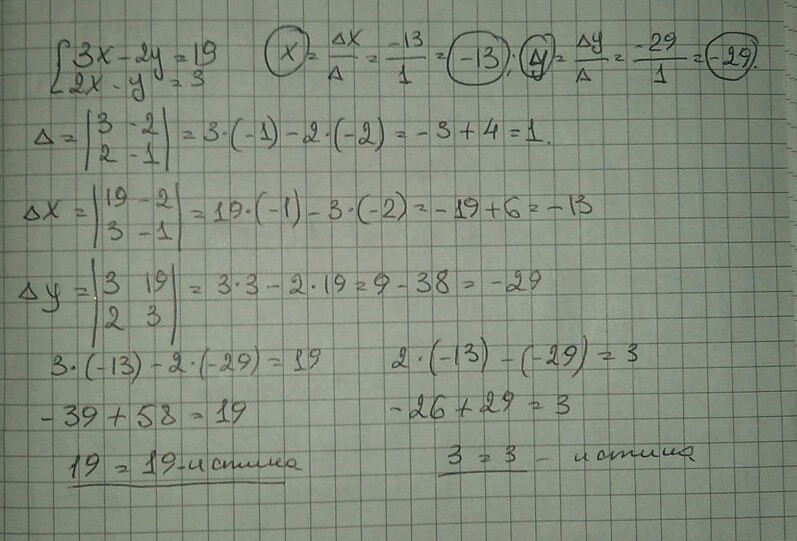 {3x - 2y = 19
2x - y = 3
x = Δx/Δ = -13/1 = -13; Δy = Δy/Δ = -29/1 = -29.
Δ = |3 -2; 2 -1| = 3·(-1) - 2·(-2) = -3 + 4 = 1.
Δx = |19 -2; 3 -1| = 19·(-1) - 3·(-2) = -19 + 6 = -13
Δy = |3 19; 2 3| = 3·3 - 2·19 = 9 - 38 = -29
3·(-13) - 2·(-29) = 19
-39 + 58 = 19
19 = 19 - истина
2·(-13) - (-29) = 3
-26 + 29 = 3
3 = 3 - истина